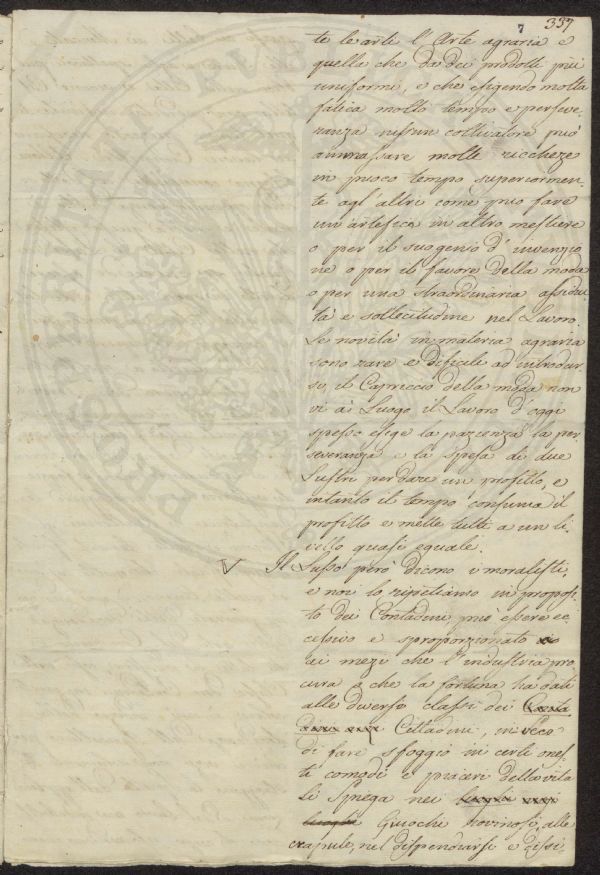 7 337
te le arti l'Arte agraria è
quella che da dei prodotti più
uniformi, e che esigendo molta
fatica molto tempo e perseve-
ranza nissun coltivatore può
ammassare molte riccheze
in puoco tempo superiormen-
te agl'altri come può fare
un'artefice in altro mestiere
o per il suo genio d'invenzio
ne o per il favore della moda
o per una straordinaria assidui
tà e sollecitudine nel Lavoro.
Le novità in materia agraria
sono rare e dificili ad introdur-
si, il Capriccio della moda non
vi à Luogo il Lavoro d'oggi
spesso esige la pazienza la per
severanza e la spesa di due
Lustri per dare un profitto, e
intanto il tempo consuma il
profitto e mette tutti a un li-
vello quasi eguale.
V Il Lusso però dicono i moralisti,
e noi lo ripetiamo in proposi
to dei Contadini può essere ec
cessivo e sproporzionato
ai mezi che l'industria pro
cura o che la fortuna ha dati
alle diverse classi dei
Cittadini, in veco
di fare sfoggio in certi ones-
ti comodi e piaceri della vita
si spiega nei
Giuochi rovinosi, alle
crapule, nel dispendiarsi e dissi